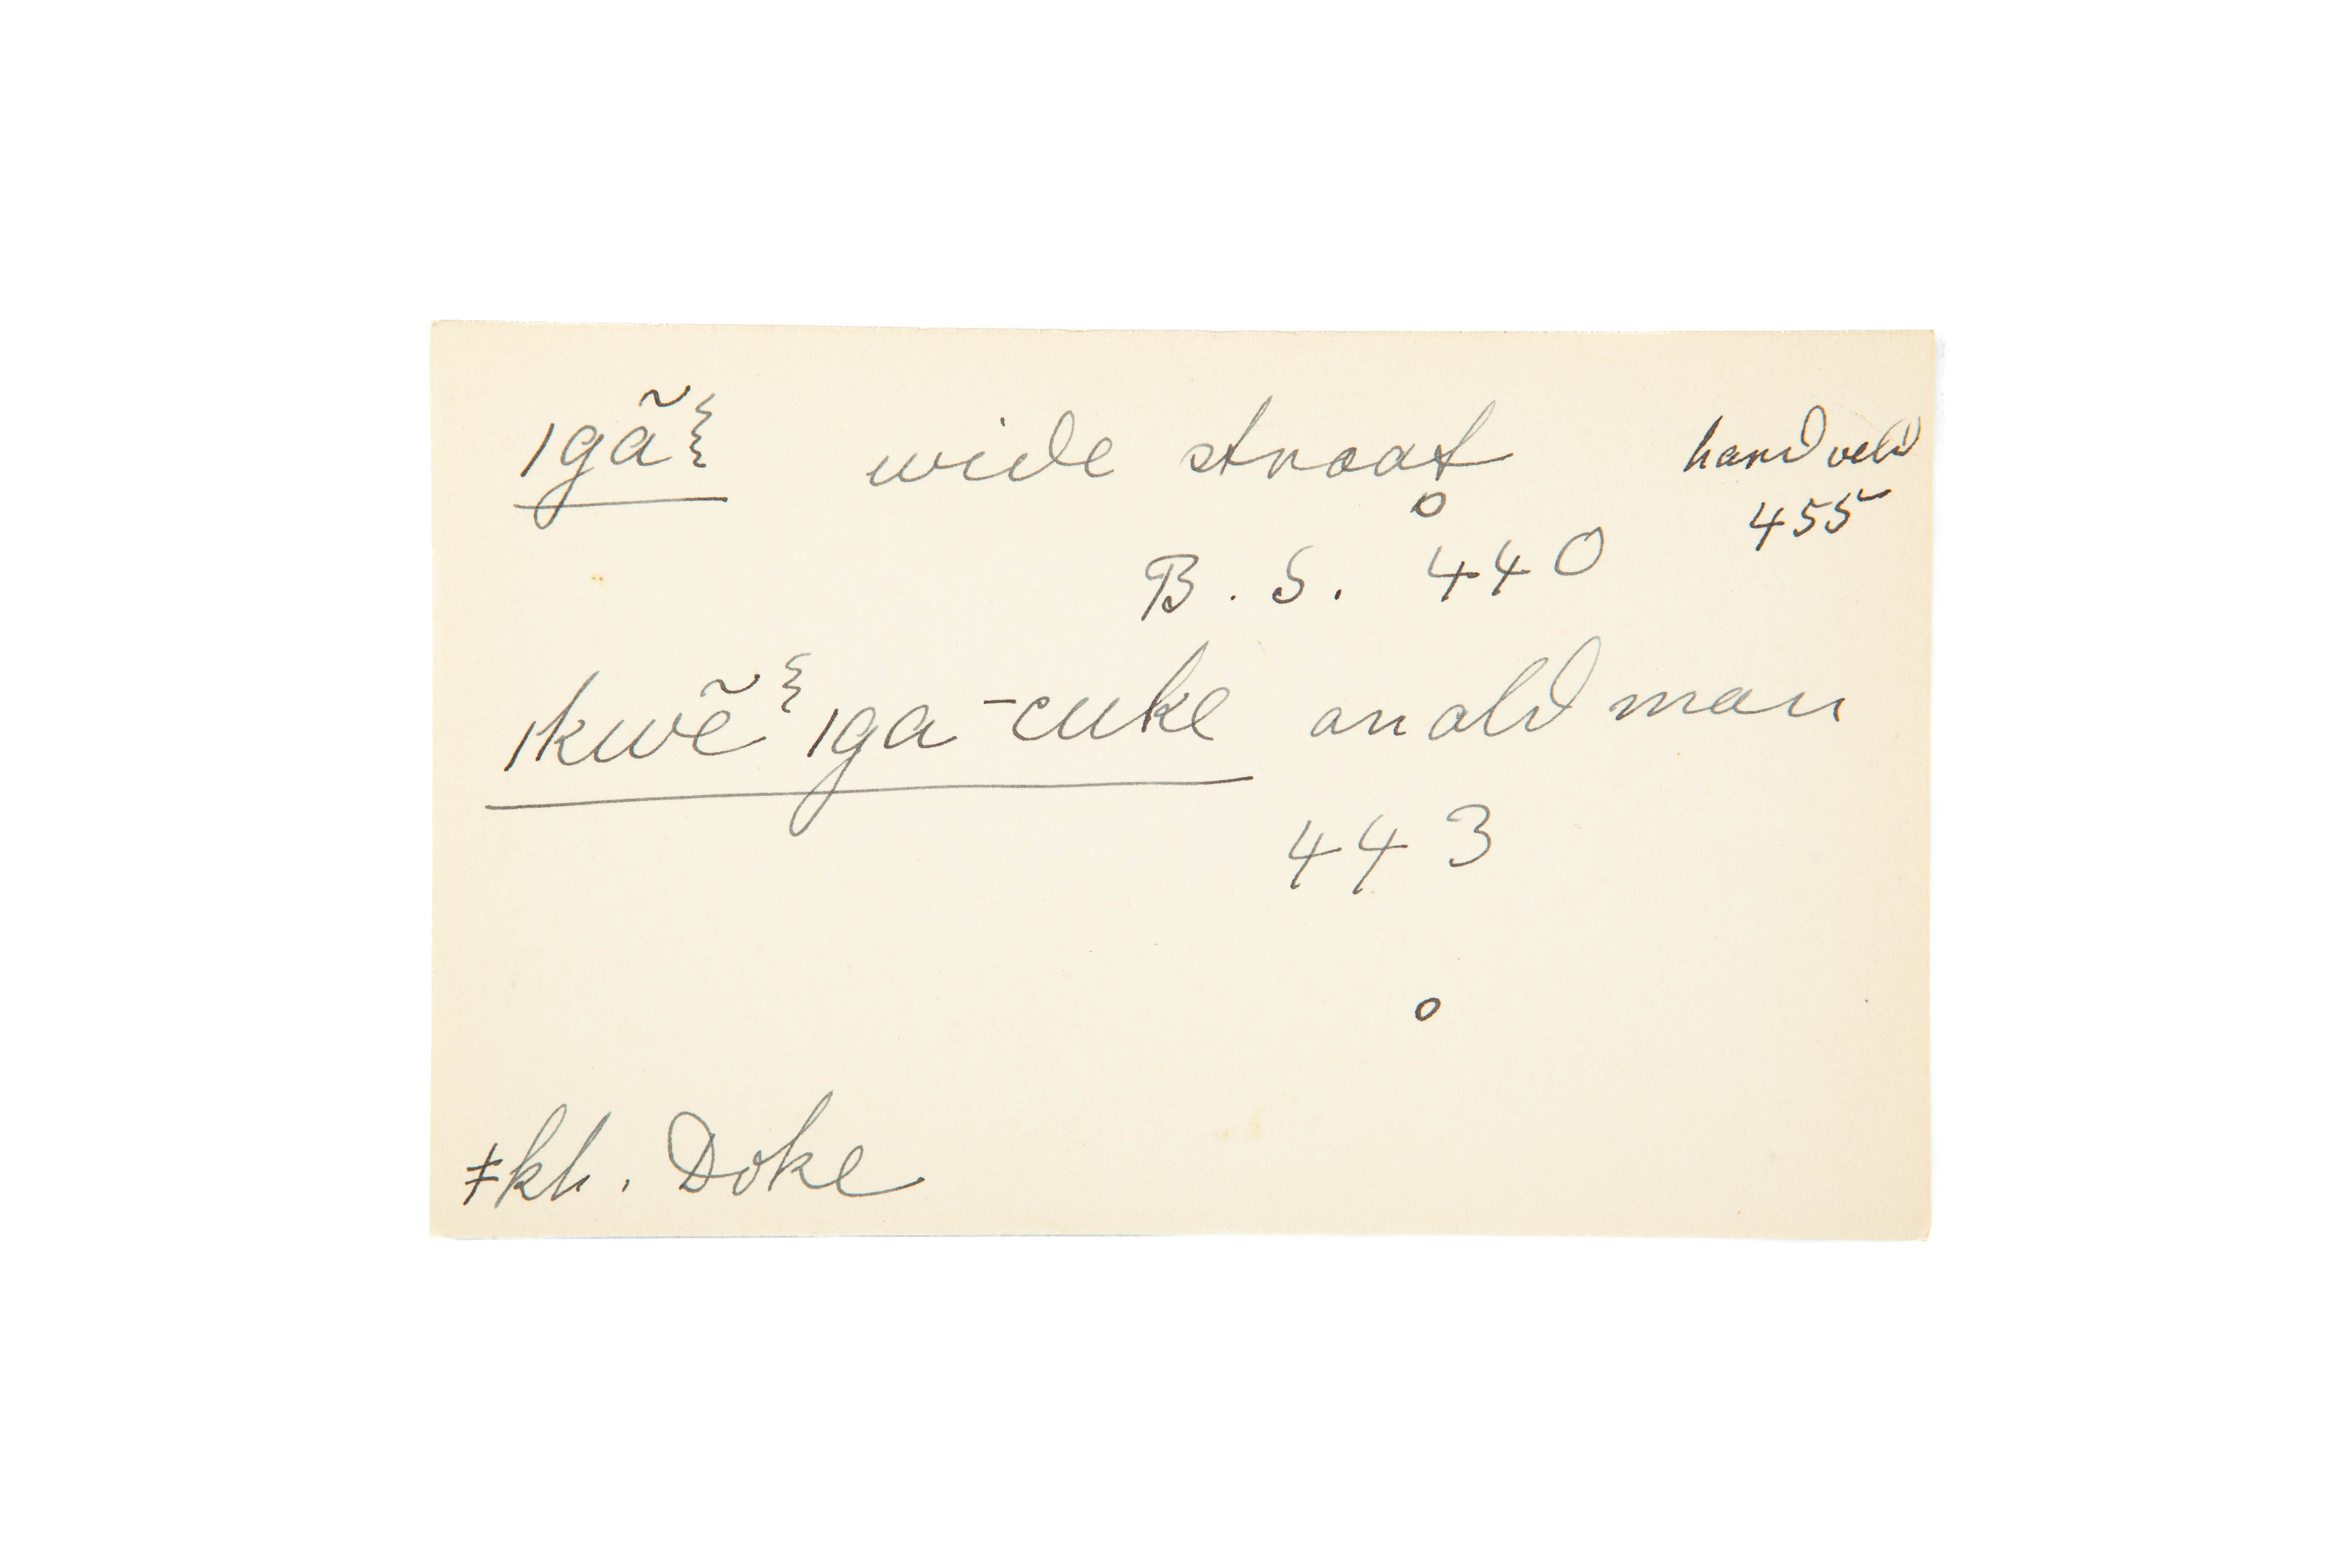 ǀgã⸾ wide straat hard veld
455
B. S. 440
ǀkwẽ⸾ ǀga-cuke an old man
443
ǂkh. Doke